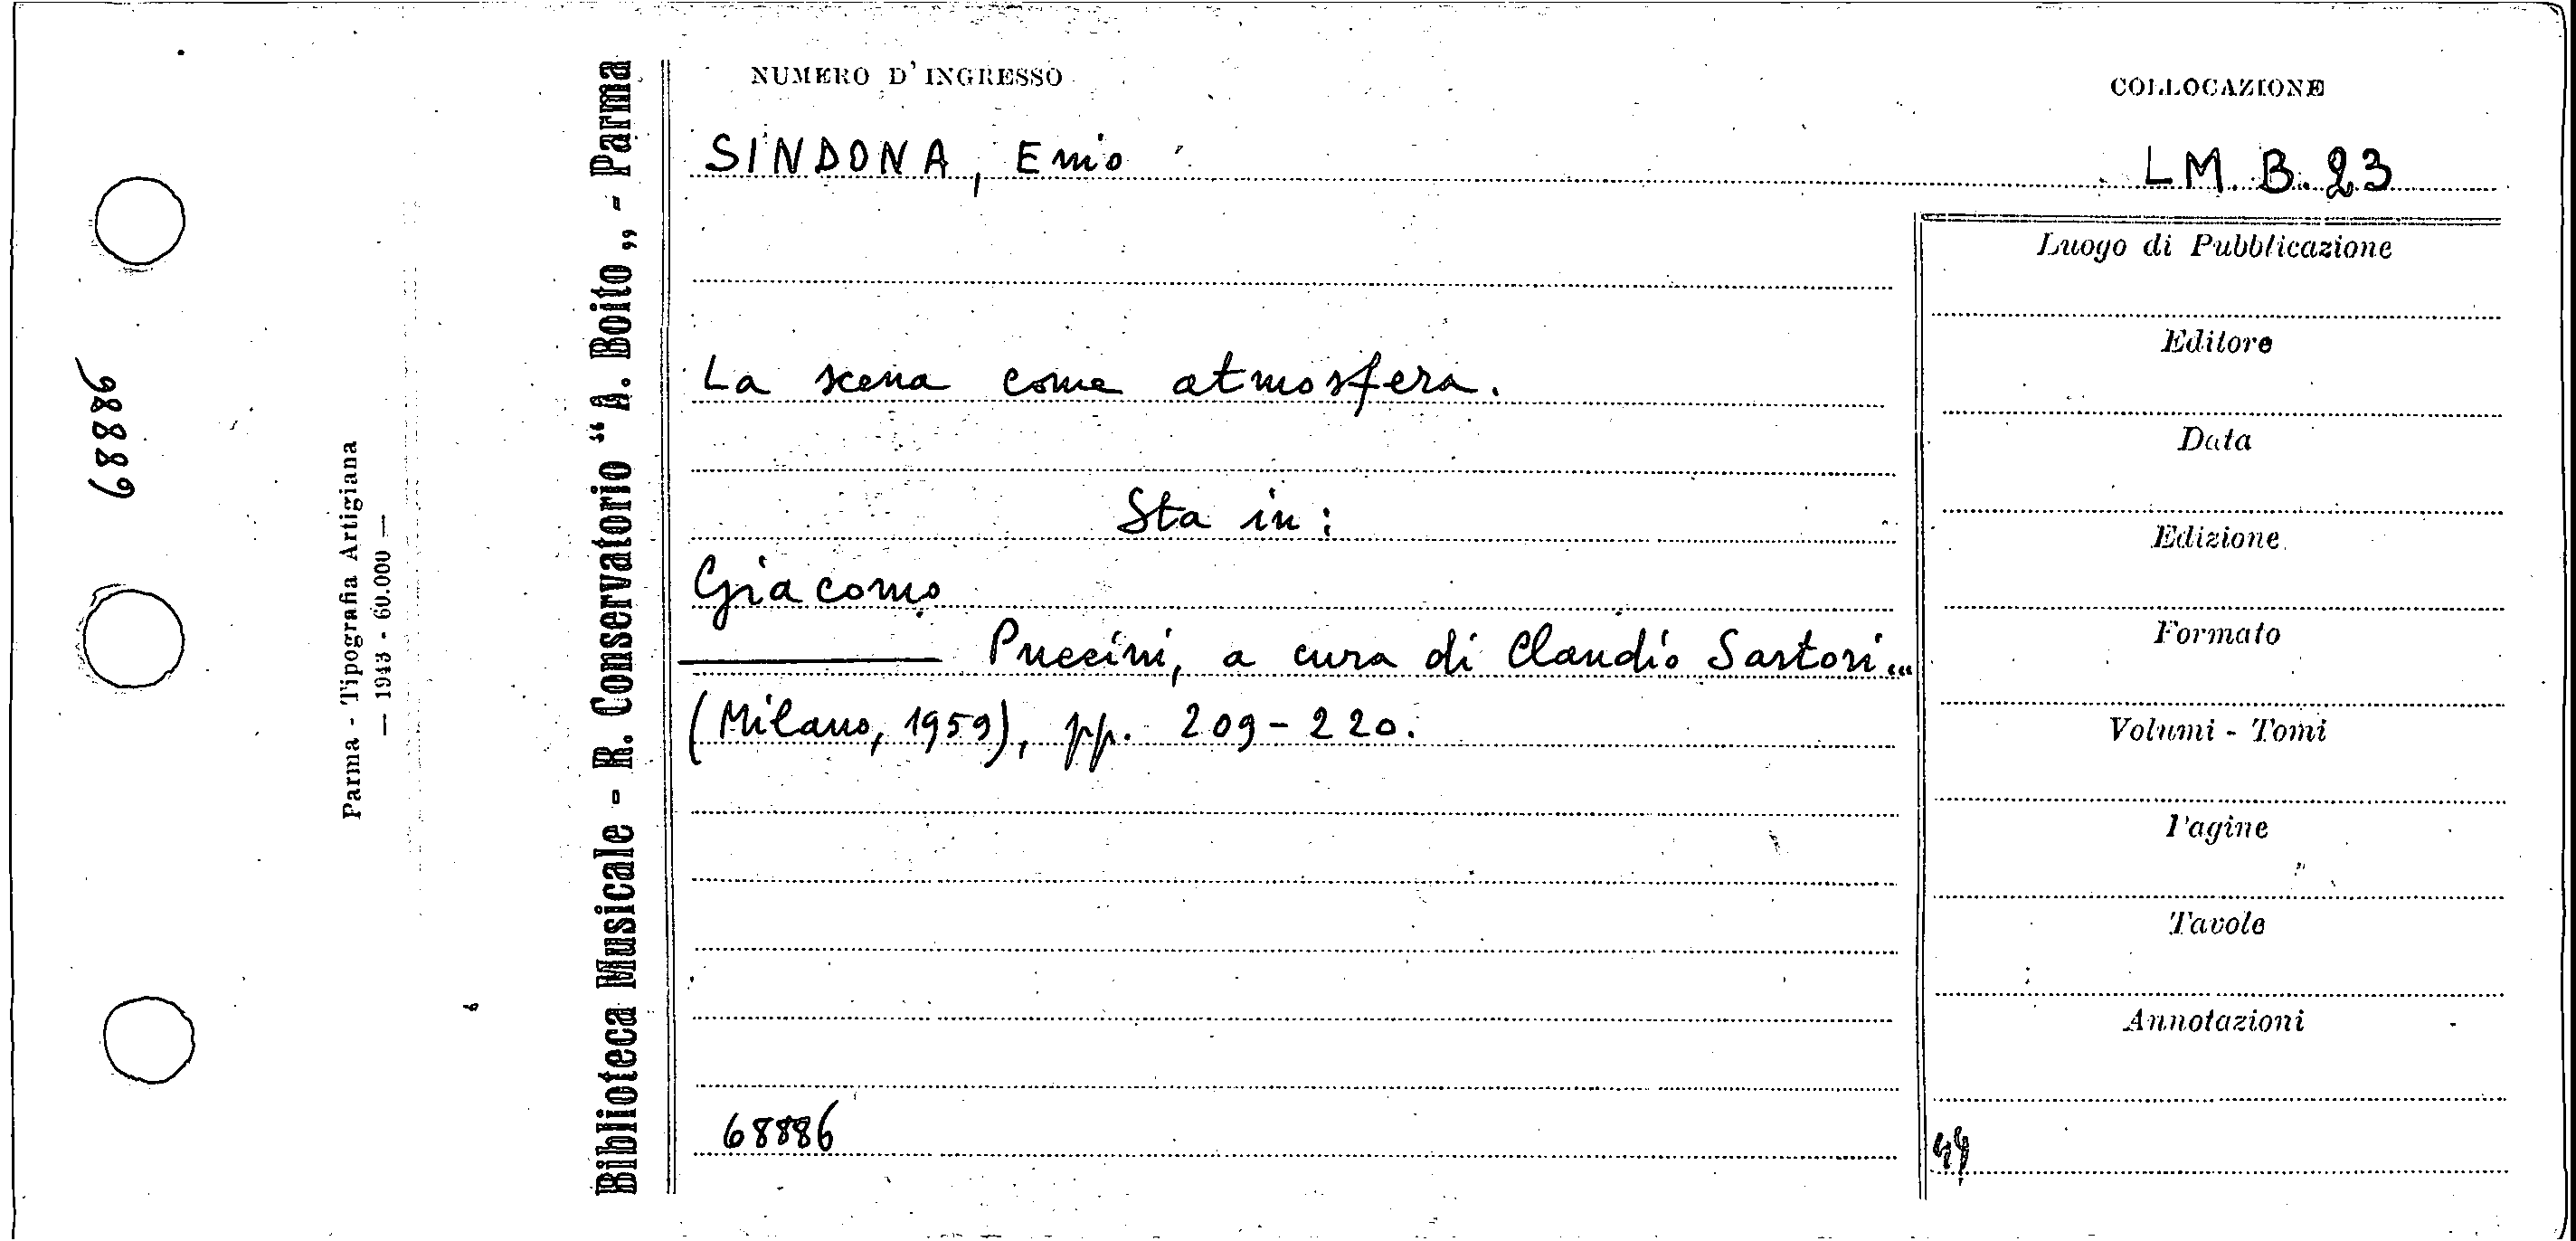 NUMERO D'INGRESSO
COLLOCAZIONE
SINDONA, Enio
LM. B. 23
La scena come atmosfera.
Sta in:
Giacomo
Puccini, a cura di Claudio Sartori...
(Milano, 1959), pp. 209-220.
68886
Luogo di Pubblicazione
Editore
Data
Edizione
Formato
Volumi - Tomi
Pagine
Tavole
Annotazioni
Biblioteca Musicale - R. Conservatorio "A. Boito„ - Parma
Parma - Tipografia Artigiana
— 1943 - 60.000 —
68886